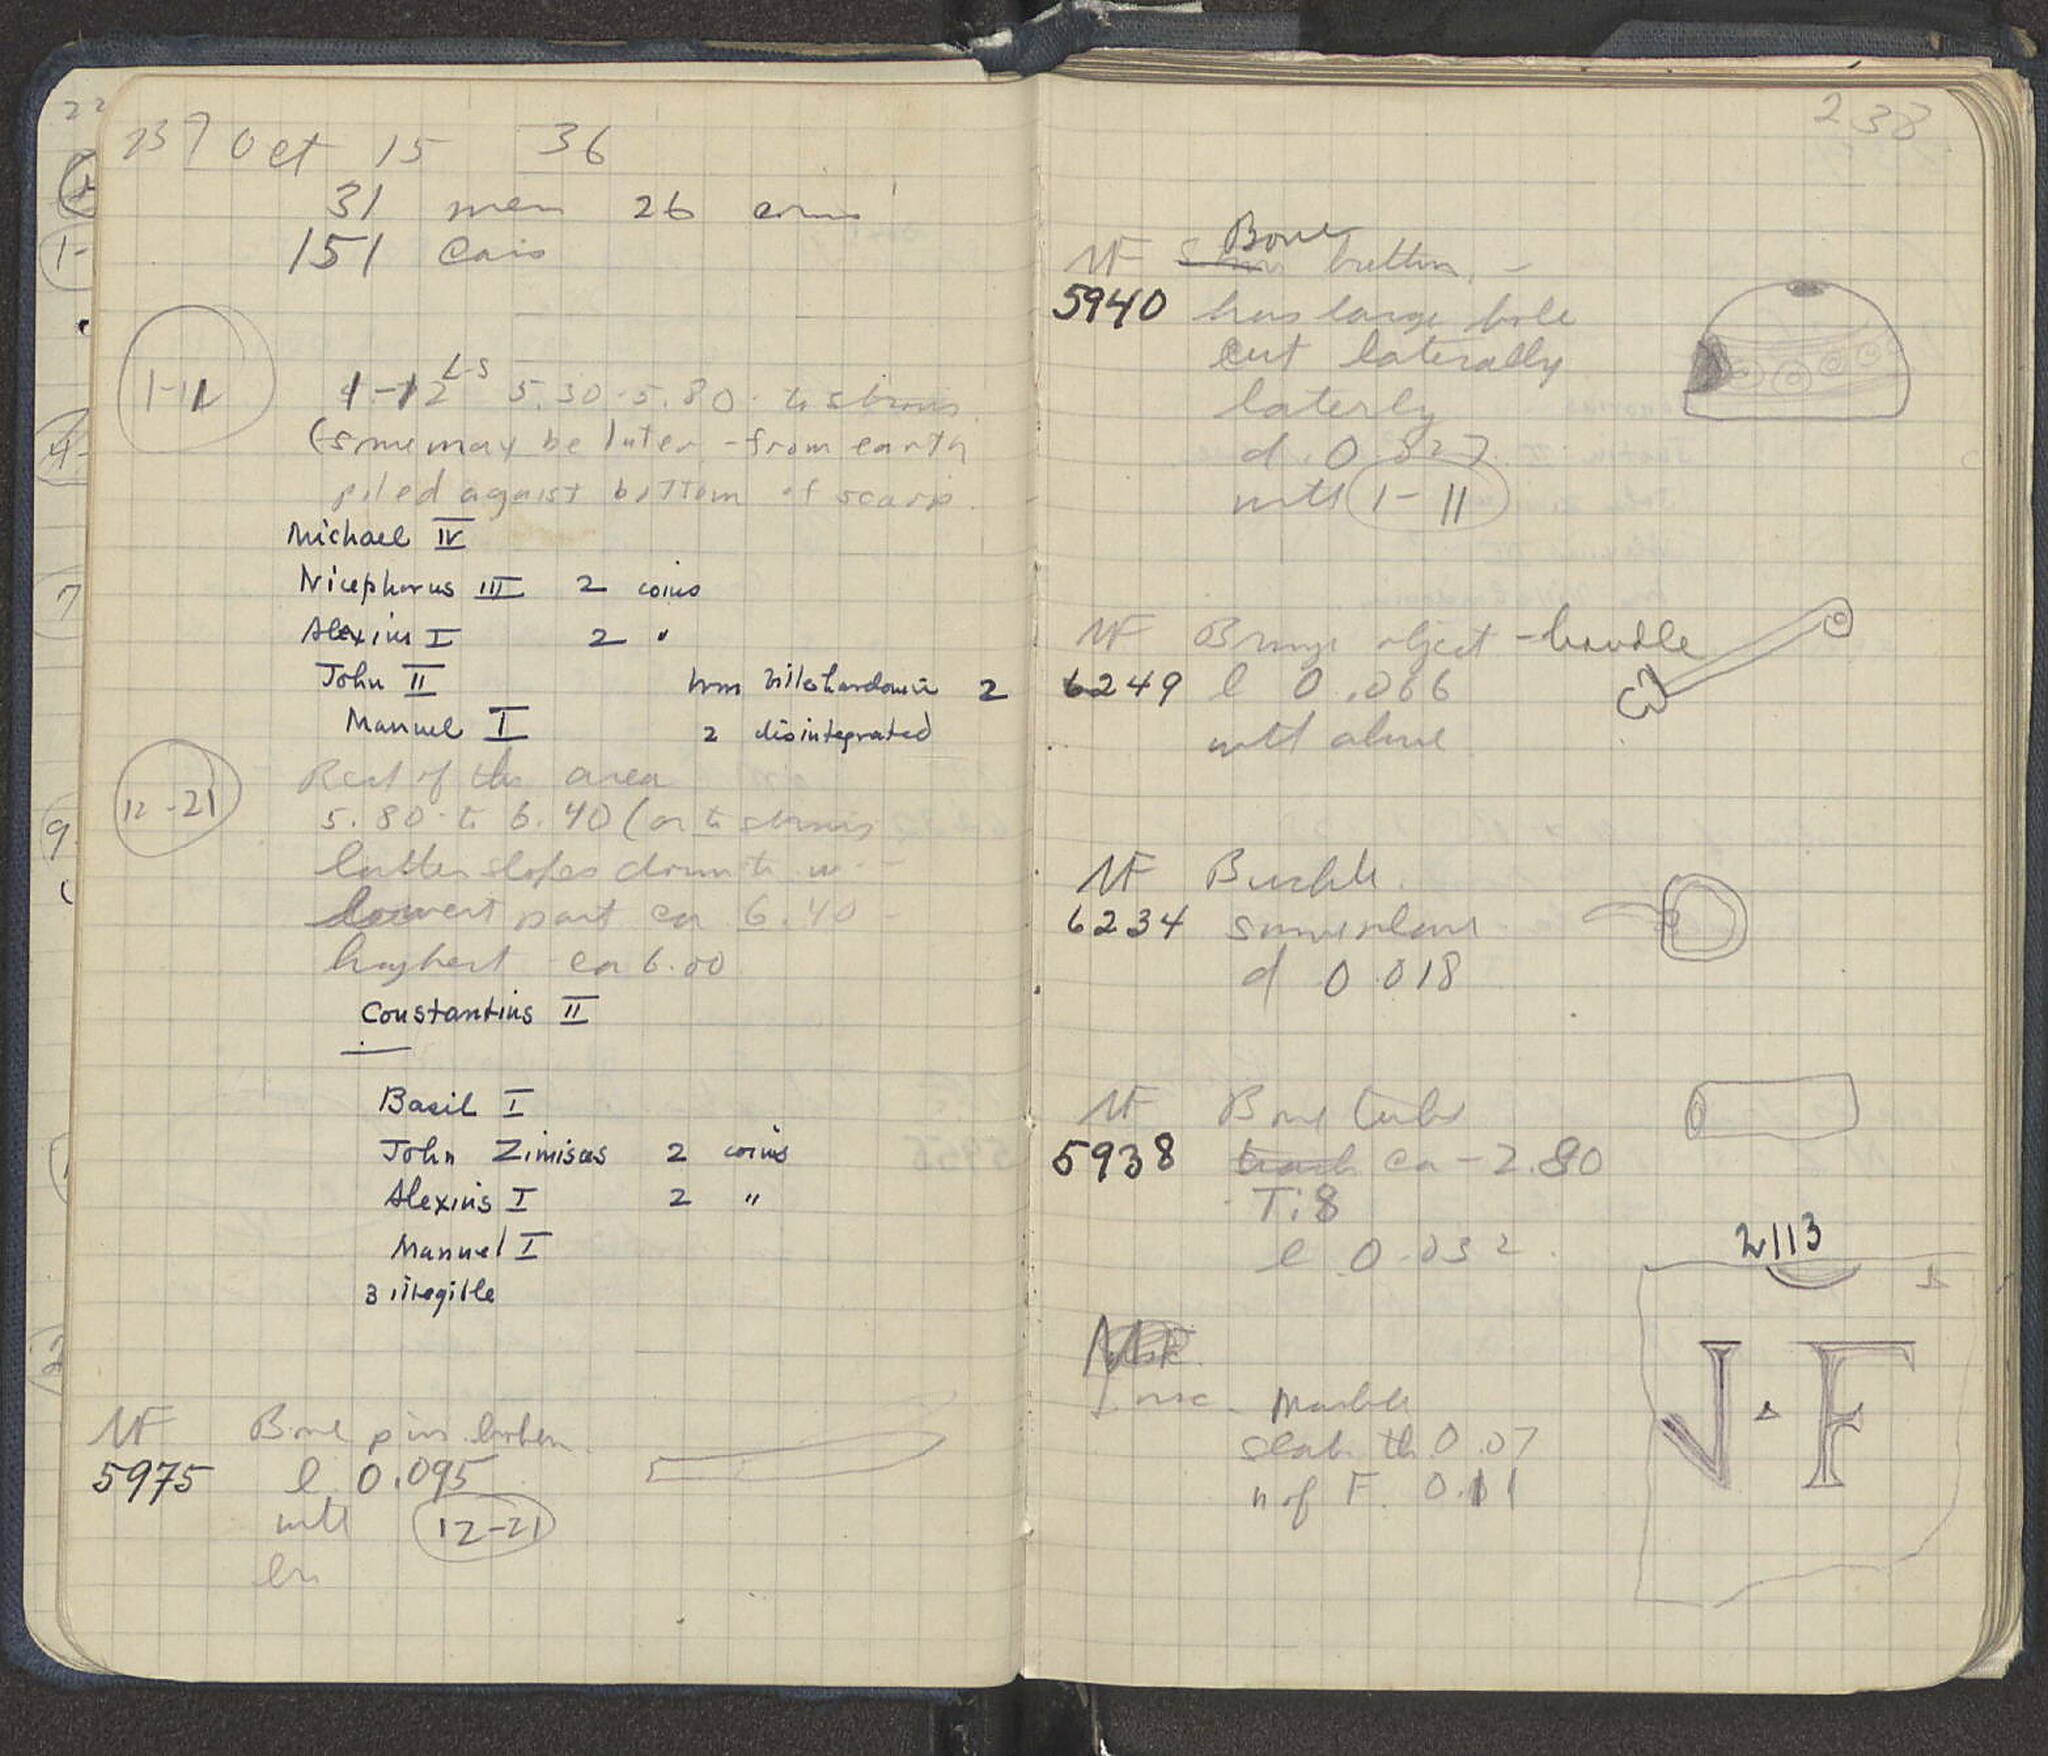 237 Oct 15 36
31 men 26 coins
151 cars
1-11
1-12 L-S 5.30-5.80 - to stosis
(some may be later - from earth
piled against bottom of scarp.
Michael IV
Nicephorus III 2 coins
Alexius I 2 "
John II Wm Villehardouin 2
Manuel I 2 disintegrated
12-21
Rest of this area
5.80 to 6.40 (or to
latter slopes down to w -
lowest part ca 6.40 -
highest ca 6.00
Constantius II
Basil I
John Zimisces 2 coins
Alexius I 2 "
Manuel I
3 illegible
MF Bone pin broken
5975 l 0.095
with 12-21
238
Bone
MF button -
5940 has large hole
cut laterally
laterly
d. 0.027
with 1-11
MF Bronze object - handle
6249 l 0.066
with above
MF Buckle
6234 same place
d 0.018
MF Bone tube
5938 ca -2.80
T:8
l 0.032
2113
Insc. Marble
slab th. 0.07
h of F. 0.11
V · F